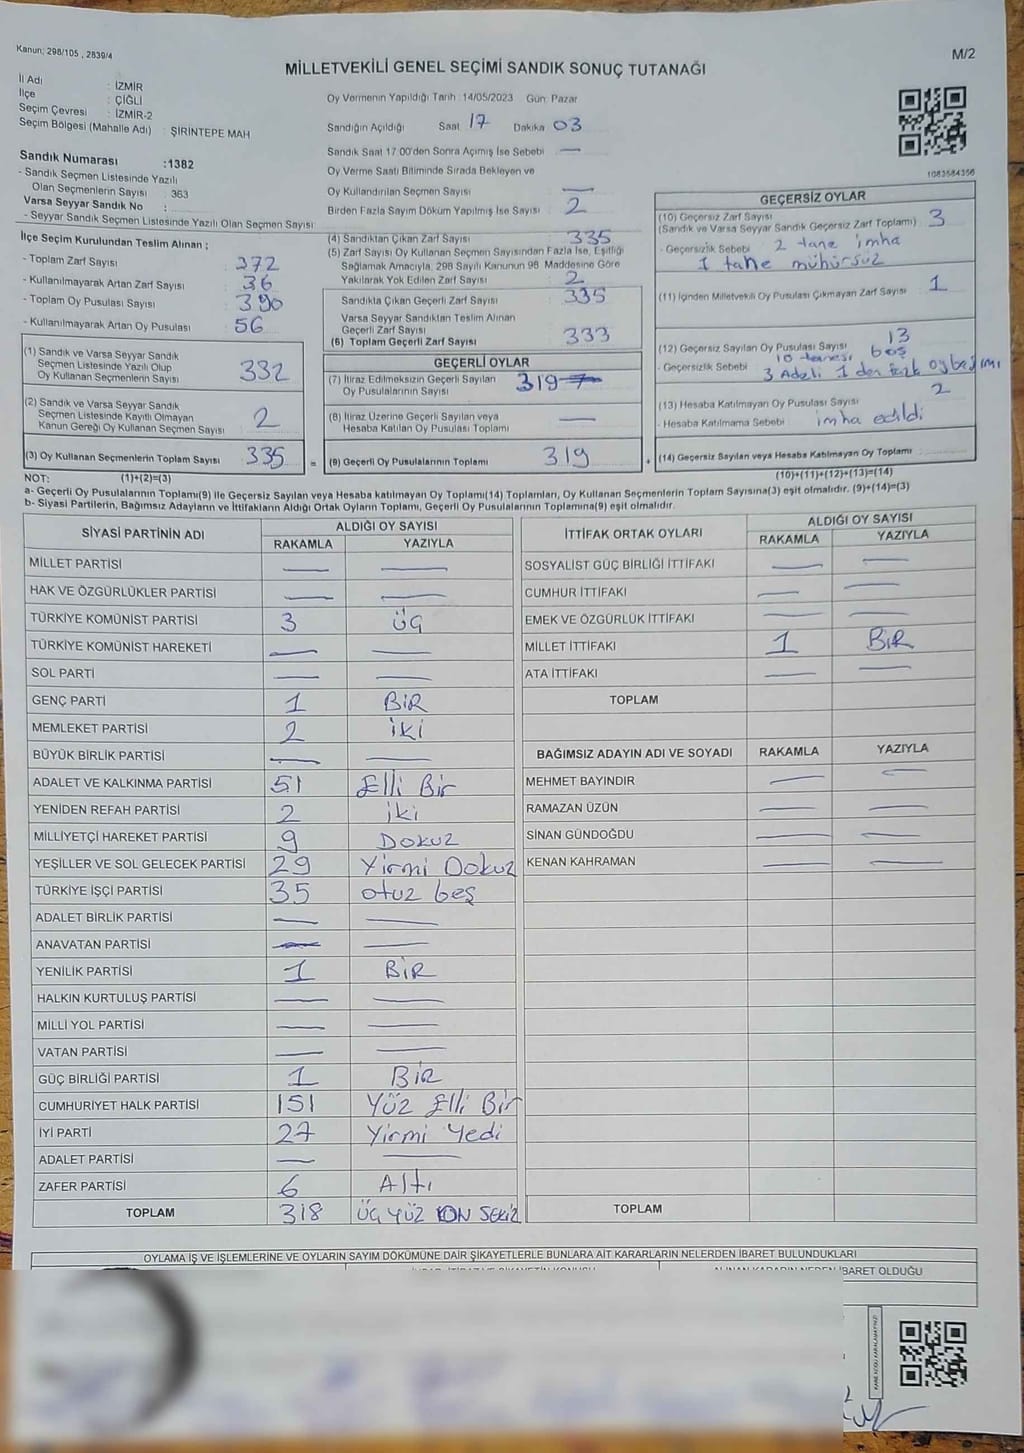 Kanun; 298/105 , 2839/4
M/2
MİLLETVEKİLİ GENEL SEÇİMİ SANDIK SONUÇ TUTANAĞI
İl Adı : İZMİR
İlçe : ÇİĞLİ
Seçim Çevresi : İZMİR-2
Seçim Bölgesi (Mahalle Adı) : ŞİRİNTEPE MAH
Sandık Numarası :1382
- Sandık Seçmen Listesinde Yazılı
Olan Seçmenlerin Sayısı : 363
Varsa Seyyar Sandık No :
- Seyyar Sandık Seçmen Listesinde Yazılı Olan Seçmen Sayısı:
İlçe Seçim Kurulundan Teslim Alınan ;
- Toplam Zarf Sayısı : 372
- Kullanılmayarak Artan Zarf Sayısı : 36
- Toplam Oy Pusulası Sayısı : 390
- Kullanılmayarak Artan Oy Pusulası : 56
(1) Sandık ve Varsa Seyyar Sandık
Seçmen Listesinde Yazılı Olup
Oy Kullanan Seçmenlerin Sayısı : 332
(2) Sandık ve Varsa Seyyar Sandık
Seçmen Listesinde Kayıtlı Olmayan
Kanun Gereği Oy Kullanan Seçmen Sayısı : 2
(3) Oy Kullanan Seçmenlerin Toplam Sayısı : 335 =
Oy Vermenin Yapıldığı Tarih :14/05/2023 Gün: Pazar
Sandığın Açıldığı Saat 17 Dakika 03
Sandık Saat 17:00'den Sonra Açımış İse Sebebi : —
Oy Verme Saati Bitiminde Sırada Bekleyen ve
Oy Kullandırılan Seçmen Sayısı : —
Birden Fazla Sayım Döküm Yapılmış İse Sayısı : 2
(4) Sandıktan Çıkan Zarf Sayısı : 335
(5) Zarf Sayısı Oy Kullanan Seçmen Sayısından Fazla İse, Eşitliği
Sağlamak Amacıyla, 298 Sayılı Kanunun 98. Maddesine Göre
Yakılarak Yok Edilen Zarf Sayısı : 2
Sandıkta Çıkan Geçerli Zarf Sayısı : 335
Varsa Seyyar Sandıktan Teslim Alınan
Geçerli Zarf Sayısı :
(6) Toplam Geçerli Zarf Sayısı : 333
GEÇERLİ OYLAR
(7) İtiraz Edilmeksizin Geçerli Sayılan
Oy Pusulalarının Sayısı : 319
(8) İtiraz Üzerine Geçerli Sayılan veya
Hesaba Katılan Oy Pusulası Toplamı : —
(9) Geçerli Oy Pusulalarının Toplamı : 319 +
1083584356
GEÇERSİZ OYLAR
(10) Geçersiz Zarf Sayısı
(Sandık ve Varsa Seyyar Sandık Geçersiz Zarf Toplamı) : 3
- Geçersizlik Sebebi : 2 tane imha
1 tane mühürsüz
(11) İçinden Milletvekili Oy Pusulası Çıkmayan Zarf Sayısı : 1
(12) Geçersiz Sayılan Oy Pusulası Sayısı : 13
- Geçersizlik Sebebi : 10 tanesi boş
3 Adeti 1 den fazla oy
(13) Hesaba Katılmayan Oy Pusulası Sayısı : 2
- Hesaba Katılmama Sebebi : imha edildi
(14) Geçersiz Sayılan veya Hesaba Katılmayan Oy Toplamı :
NOT: (1)+(2)=(3) (10)+(11)+(12)+(13)=(14)
a- Geçerli Oy Pusulalarının Toplamı(9) ile Geçersiz Sayılan veya Hesaba katılmayan Oy Toplamı(14) Toplamları, Oy Kullanan Seçmenlerin Toplam Sayısına(3) eşit olmalıdır. (9)+(14)=(3)
b- Siyasi Partilerin, Bağımsız Adayların ve İttifakların Aldığı Ortak Oyların Toplamı, Geçerli Oy Pusulalarının Toplamına(9) eşit olmalıdır.
SİYASİ PARTİNİN ADI ALDIĞI OY SAYISI
RAKAMLA YAZIYLA
MİLLET PARTİSİ — —
HAK VE ÖZGÜRLÜKLER PARTİSİ — —
TÜRKİYE KOMÜNİST PARTİSİ 3 Üç
TÜRKİYE KOMÜNİST HAREKETİ — —
SOL PARTİ — —
GENÇ PARTİ 1 BİR
MEMLEKET PARTİSİ 2 iki
BÜYÜK BİRLİK PARTİSİ — —
ADALET VE KALKINMA PARTİSİ 51 Elli Bir
YENİDEN REFAH PARTİSİ 2 iki
MİLLİYETÇİ HAREKET PARTİSİ 9 Dokuz
YEŞİLLER VE SOL GELECEK PARTİSİ 29 Yirmi Dokuz
TÜRKİYE İŞÇİ PARTİSİ 35 otuz beş
ADALET BİRLİK PARTİSİ — —
ANAVATAN PARTİSİ — —
YENİLİK PARTİSİ 1 BİR
HALKIN KURTULUŞ PARTİSİ — —
MİLLİ YOL PARTİSİ — —
VATAN PARTİSİ — —
GÜÇ BİRLİĞİ PARTİSİ 1 BİR
CUMHURİYET HALK PARTİSİ 151 Yüz Elli Bir
İYİ PARTİ 27 Yirmi Yedi
ADALET PARTİSİ — —
ZAFER PARTİSİ 6 Altı
TOPLAM 318 ÜÇ YÜZ ON SEKİZ
İTTİFAK ORTAK OYLARI ALDIĞI OY SAYISI
RAKAMLA YAZIYLA
SOSYALİST GÜÇ BİRLİĞİ İTTİFAKI — —
CUMHUR İTTİFAKI — —
EMEK VE ÖZGÜRLÜK İTTİFAKI — —
MİLLET İTTİFAKI 1 BİR
ATA İTTİFAKI — —
TOPLAM
BAĞIMSIZ ADAYIN ADI VE SOYADI RAKAMLA YAZIYLA
MEHMET BAYINDIR — —
RAMAZAN ÜZÜN — —
SİNAN GÜNDOĞDU — —
KENAN KAHRAMAN — —
TOPLAM
OYLAMA İŞ VE İŞLEMLERİNE VE OYLARIN SAYIM DÖKÜMÜNE DAİR ŞİKAYETLERLE BUNLARA AİT KARARLARIN NELERDEN İBARET BULUNDUKLARI
ALINAN KARARIN NEDEN İBARET OLDUĞU